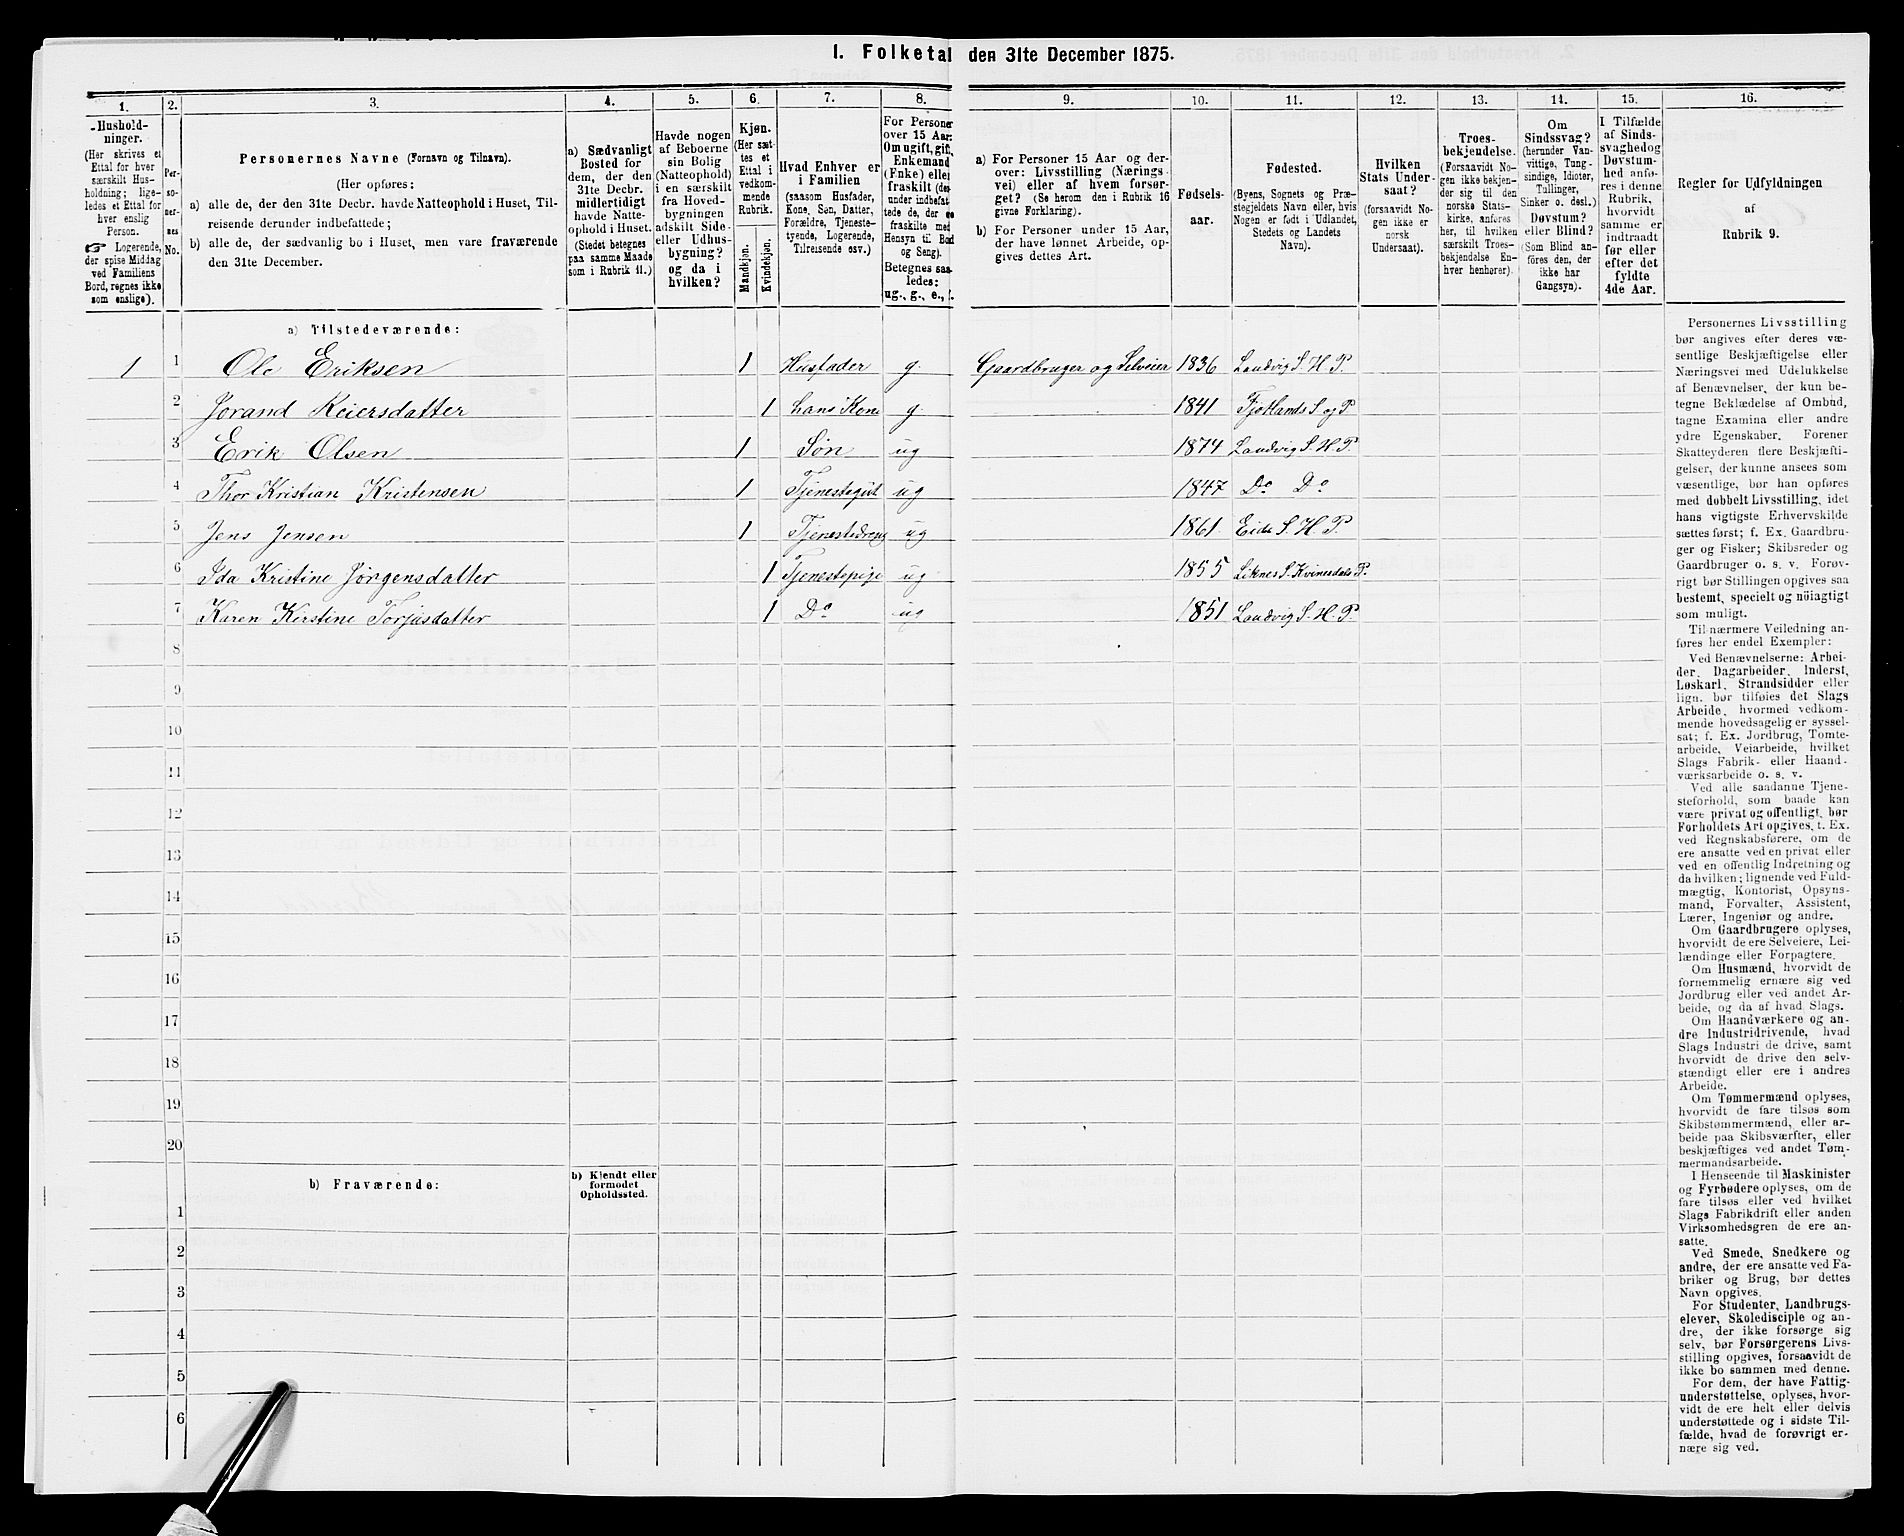 1. Folketal den 31te December 1875.
1. 2. 3. 4. 5. 6. 7. 8. 9. 10. 11. 12. 13. 14. 15. 16.
Husholdninger.
(Her skrives et
Ettal for hver
særskilt Hus-
holdning; lige-
ledes et Ettal for
hver enslig
Person.
☞ Logerende,
der spise Middag
ved Familiens
Bord, regnes ikke
som enslige).
Per-
so-
ner-
nes
No.
Personernes Navne (Fornavn og Tilnavn).
(Her opføres:
a) alle de, der den 31te Decbr. havde Natteophold i Huset, Til-
reisende derunder indbefattede;
b) alle de, der sædvanlig bo i Huset, men vare fraværende
den 31te December.
a) Sædvanligt
Bosted for
dem, der den
31te Decbr.
midlertidigt
havde Natte-
ophold i Huset.
(Stedet betegnes
paa samme Maade
som i Rubrik 11.)
Havde nogen
af Beboerne
sin Bolig
(Natteophold)
i en særskilt
fra Hoved-
bygningen
adskilt Side-
eller Udhus-
bygning?
og da i
hvilken?
Kjøn.
(Her sæt-
tes et
Ettal i
vedkom-
mende
Rubrik.
Mandkjøn.
Kvindekjøn.
Hvad Enhver er
i Familien
(saasom Husfader,
Kone, Søn, Datter,
Forældre, Tjeneste-
tyende, Logerende,
Tilreisende osv.)
For Personer
over 15 Aar:
Om ugift, gift,
Enkemand
(Enke) eller
fraskilt (der-
under indbefat-
tede de, der ere
fraskilte med
Hensyn til Bord
og Seng).
Betegnes saa-
ledes:
ug., g., e., f.
a) For Personer 15 Aar og der-
over: Livsstilling (Nærings-
vei) eller af hvem forsør-
get? (Se herom den i Rubrik 16
givne Forklaring).
b) For Personer under 15 Aar,
der have lønnet Arbeide, op-
gives dettes Art.
Fødsels-
aar.
Fødested.
(Byens, Sognets og Præ-
stegjeldets Navn eller, hvis
Nogen er født i Udlandet,
Stedets og Landets
Navn).
Hvilken
Stats Under-
saat?
(forsaavidt No-
gen ikke er
norsk
Undersaat).
Troes-
bekjendelse.
(Forsaavidt No-
gen ikke bekjen-
der sig til den
norske Stats-
kirke, anføres
her, til hvilken
særskilt Troes-
bekjendelse En-
hver henhører).
Om
Sindssvag?
(herunder Van-
vittige, Tung-
sindige, Idioter,
Tullinger,
Sinker o. desl.)
Døvstum?
eller Blind?
(Som Blind an-
føres den, der
ikke har
Gangsyn).
I Tilfælde
af Sinds-
svaghed og
Døvstum-
hed anfø-
res i denne
Rubrik,
hvorvidt
samme er
indtraadt
før eller
efter det
fyldte
4de Aar.
Regler for Udfyldningen
af
Rubrik 9.
a) Tilstedeværende:
1 1 Ole Eriksen 1 Husfader g. Gaardbruger og Selveier 1836 Landvig S. H. P.
2 Jorand Reiersdatter 1 hans Kone g 1841 Fjotlands S. og P
3 Erik Olsen 1 Søn ug 1874 Landvig S. H. P.
4 Thor Kristian Kristensen 1 Tjenestegut ug 1847 Do Do
5 Jens Jensen 1 Tjenestedreng ug 1861 Eide S. H. P.
6 Ida Kristine Jørgensdatter 1 Tjenestepige ug 1855 Liknes S. Kvinesdals P.
7 Karen Kirstine Torjusdatter 1 Do ug 1851 Landvig S. H. P.
8
9
10
11
12
13
14
15
16
17
18
19
20
b) Fraværende:
b) Kjendt eller
formodet
Opholdssted.
1
2
3
4
5
6
Personernes Livsstilling
bør angives efter deres væ-
sentlige Beskjæftigelse eller
Næringsvei med Udelukkelse
af Benævnelser, der kun be-
tegne Beklædelse af Ombud,
tagne Examina eller andre
ydre Egenskaber. Forener
Skatteyderen flere Beskjæfti-
gelser, der kunne ansees som
væsentlige, bør han opføres
med dobbelt Livsstilling, idet
hans vigtigste Erhvervskilde
sættes først; f. Ex. Gaardbru-
ger og Fisker; Skibsreder og
Gaardbruger o. s. v. Forøv-
rigt bør Stillingen opgives saa
bestemt, specielt og nöiagtigt
som muligt.
Til nærmere Veiledning an-
føres her endel Exempler:
Ved Benævnelserne: Arbei-
der, Dagarbeider, Inderst,
Løskarl, Strandsidder eller
lign. bør tilføies det Slags
Arbeide, hvormed vedkom-
mende hovedsagelig er syssel-
sat; f. Ex. Jordbrug, Tomte-
arbeide, Veiarbeide, hvilket
Slags Fabrik- eller Haand-
værksarbeide o. s. v.
Ved alle saadanne Tjene-
steforhold, som baade kan
være privat og offentligt, bør
Forholdets Art opgives, t. Ex.
ved Regnskabsførere, om de
ere ansatte ved en privat eller
ved en offentlig Indretning og
da hvilken; lignende ved Fuld-
mægtig, Kontorist, Opsyns-
mand, Forvalter, Assistent,
Lærer, Ingeniør og andre.
Om Gaardbrugere oplyses,
hvorvidt de ere Selveiere, Lei-
lændinge eller Forpagtere.
Om Husmænd, hvorvidt de
fornemmelig ernære sig ved
Jordbrug eller ved andet Ar-
beide, og da af hvad Slags.
Om Haandværkere og an-
dre Industridrivende, hvad
Slags Industri de drive, samt
hvorvidt de drive den selv-
stændigt eller ere i andres
Arbeide.
Om Tømmermænd oplyses,
hvorvidt de fare tilsøs som
Skibstømmermænd, eller ar-
beide paa Skibsværfter, eller
beskjæftiges ved andet Tøm-
mermandsarbeide.
I Henseende til Maskinister
og Fyrbødere oplyses, om de
fare tilsøs eller ved hvilket
Slags Fabrikdrift eller anden
Virksomhedsgren de ere an-
satte.
Ved Smede, Snedkere og
andre, der ere ansatte ved Fa-
briker og Brug, bør dettes
Navn opgives.
For Studenter, Landbrugs-
elever, Skoledisciple og an-
dre, der ikke forsørge sig
selv, bør Forsørgerens Livs-
stilling opgives, forsaavidt de
ikke bo sammen med denne.
For dem, der have Fattig-
understøttelse, oplyses, hvor-
vidt de ere helt eller delvis
understøttede og i sidste Til-
fælde, hvad de forøvrigt er-
nære sig ved.